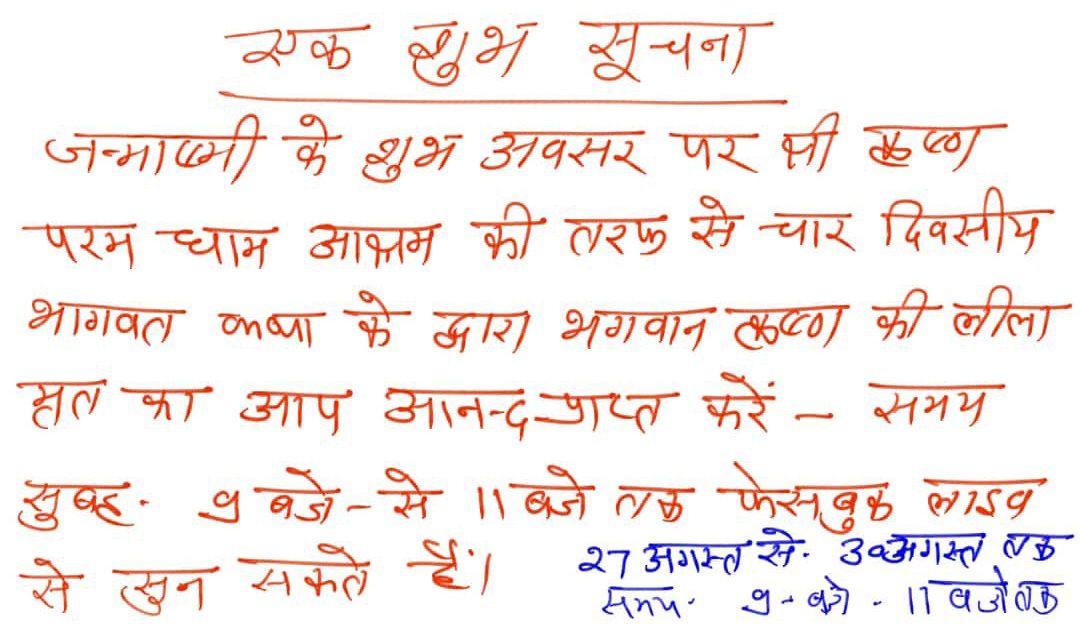 एक शुभ सूचना
जन्माष्मी के शुभ अवसर पर श्री कृष्ण
परम धाम आश्रम की तरफ से चार दिवसीय
भागवत कथा के द्वारा भगवान कृष्ण की लीला
मृत का आप आनन्द प्राप्त करें - समय
सुबह. 9 बजे - से 11 बजे तक फेसबुक लाइव
से सुन सकते हैं।
27 अगस्त से. 30 अगस्त तक
समय. 9 - बजे - 11 बजे तक